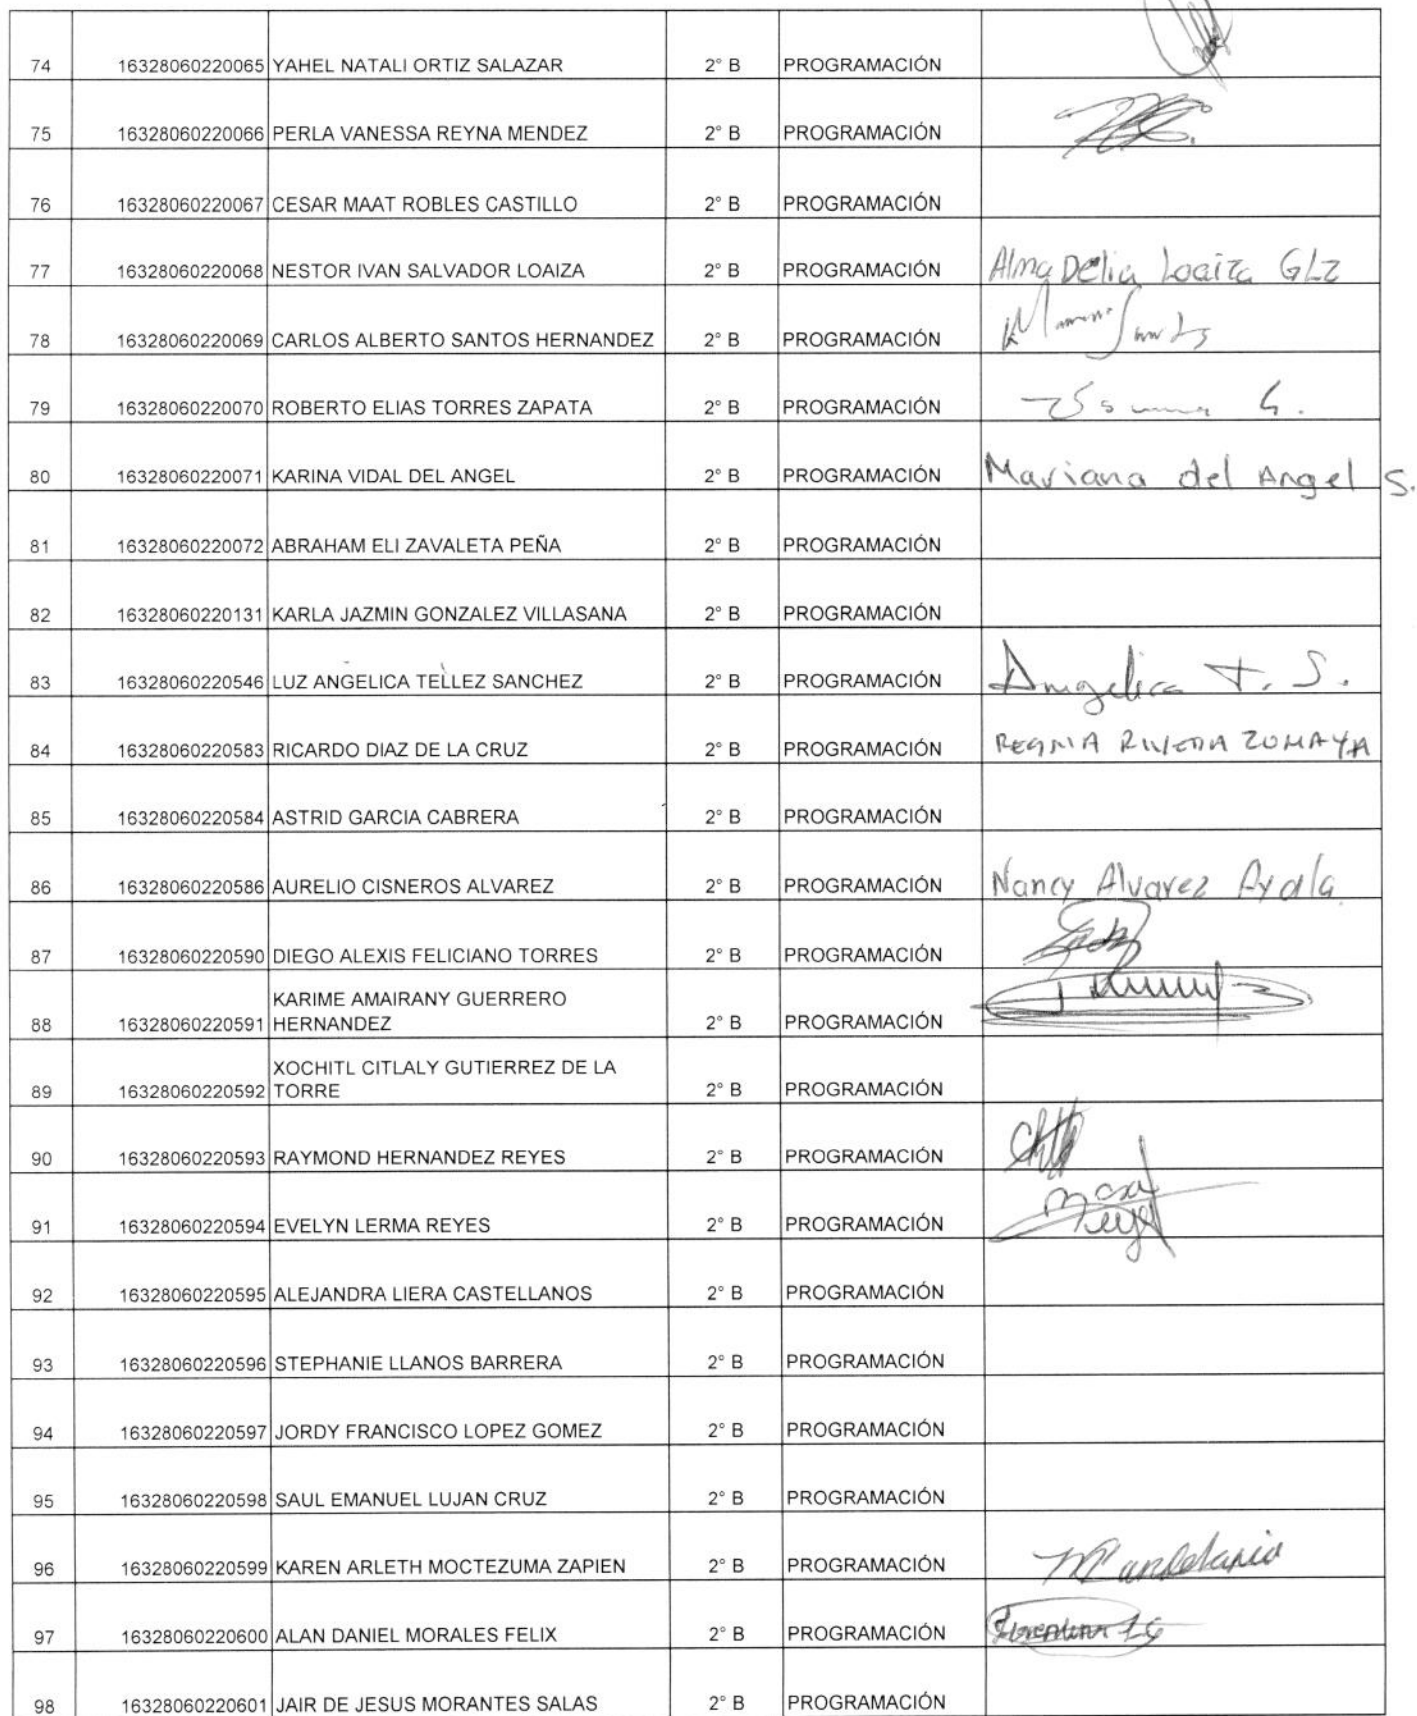 74 16328060220065 YAHEL NATALI ORTIZ SALAZAR 2° B PROGRAMACIÓN
75 16328060220066 PERLA VANESSA REYNA MENDEZ 2° B PROGRAMACIÓN
76 16328060220067 CESAR MAAT ROBLES CASTILLO 2° B PROGRAMACIÓN
77 16328060220068 NESTOR IVAN SALVADOR LOAIZA 2° B PROGRAMACIÓN Alma Delia Loaiza GLZ
78 16328060220069 CARLOS ALBERTO SANTOS HERNANDEZ 2° B PROGRAMACIÓN
79 16328060220070 ROBERTO ELIAS TORRES ZAPATA 2° B PROGRAMACIÓN
80 16328060220071 KARINA VIDAL DEL ANGEL 2° B PROGRAMACIÓN Mariana del Angel S.
81 16328060220072 ABRAHAM ELI ZAVALETA PEÑA 2° B PROGRAMACIÓN
82 16328060220131 KARLA JAZMIN GONZALEZ VILLASANA 2° B PROGRAMACIÓN
83 16328060220546 LUZ ANGELICA TELLEZ SANCHEZ 2° B PROGRAMACIÓN Angelica T. S.
84 16328060220583 RICARDO DIAZ DE LA CRUZ 2° B PROGRAMACIÓN RIVERA ZUMAYA
85 16328060220584 ASTRID GARCIA CABRERA 2° B PROGRAMACIÓN
86 16328060220586 AURELIO CISNEROS ALVAREZ 2° B PROGRAMACIÓN Nancy Alvarez Ayala
87 16328060220590 DIEGO ALEXIS FELICIANO TORRES 2° B PROGRAMACIÓN
KARIME AMAIRANY GUERRERO
88 16328060220591 HERNANDEZ 2° B PROGRAMACIÓN
XOCHITL CITLALY GUTIERREZ DE LA
89 16328060220592 TORRE 2° B PROGRAMACIÓN
90 16328060220593 RAYMOND HERNANDEZ REYES 2° B PROGRAMACIÓN
91 16328060220594 EVELYN LERMA REYES 2° B PROGRAMACIÓN
92 16328060220595 ALEJANDRA LIERA CASTELLANOS 2° B PROGRAMACIÓN
93 16328060220596 STEPHANIE LLANOS BARRERA 2° B PROGRAMACIÓN
94 16328060220597 JORDY FRANCISCO LOPEZ GOMEZ 2° B PROGRAMACIÓN
95 16328060220598 SAUL EMANUEL LUJAN CRUZ 2° B PROGRAMACIÓN
96 16328060220599 KAREN ARLETH MOCTEZUMA ZAPIEN 2° B PROGRAMACIÓN
97 16328060220600 ALAN DANIEL MORALES FELIX 2° B PROGRAMACIÓN
98 16328060220601 JAIR DE JESUS MORANTES SALAS 2° B PROGRAMACIÓN